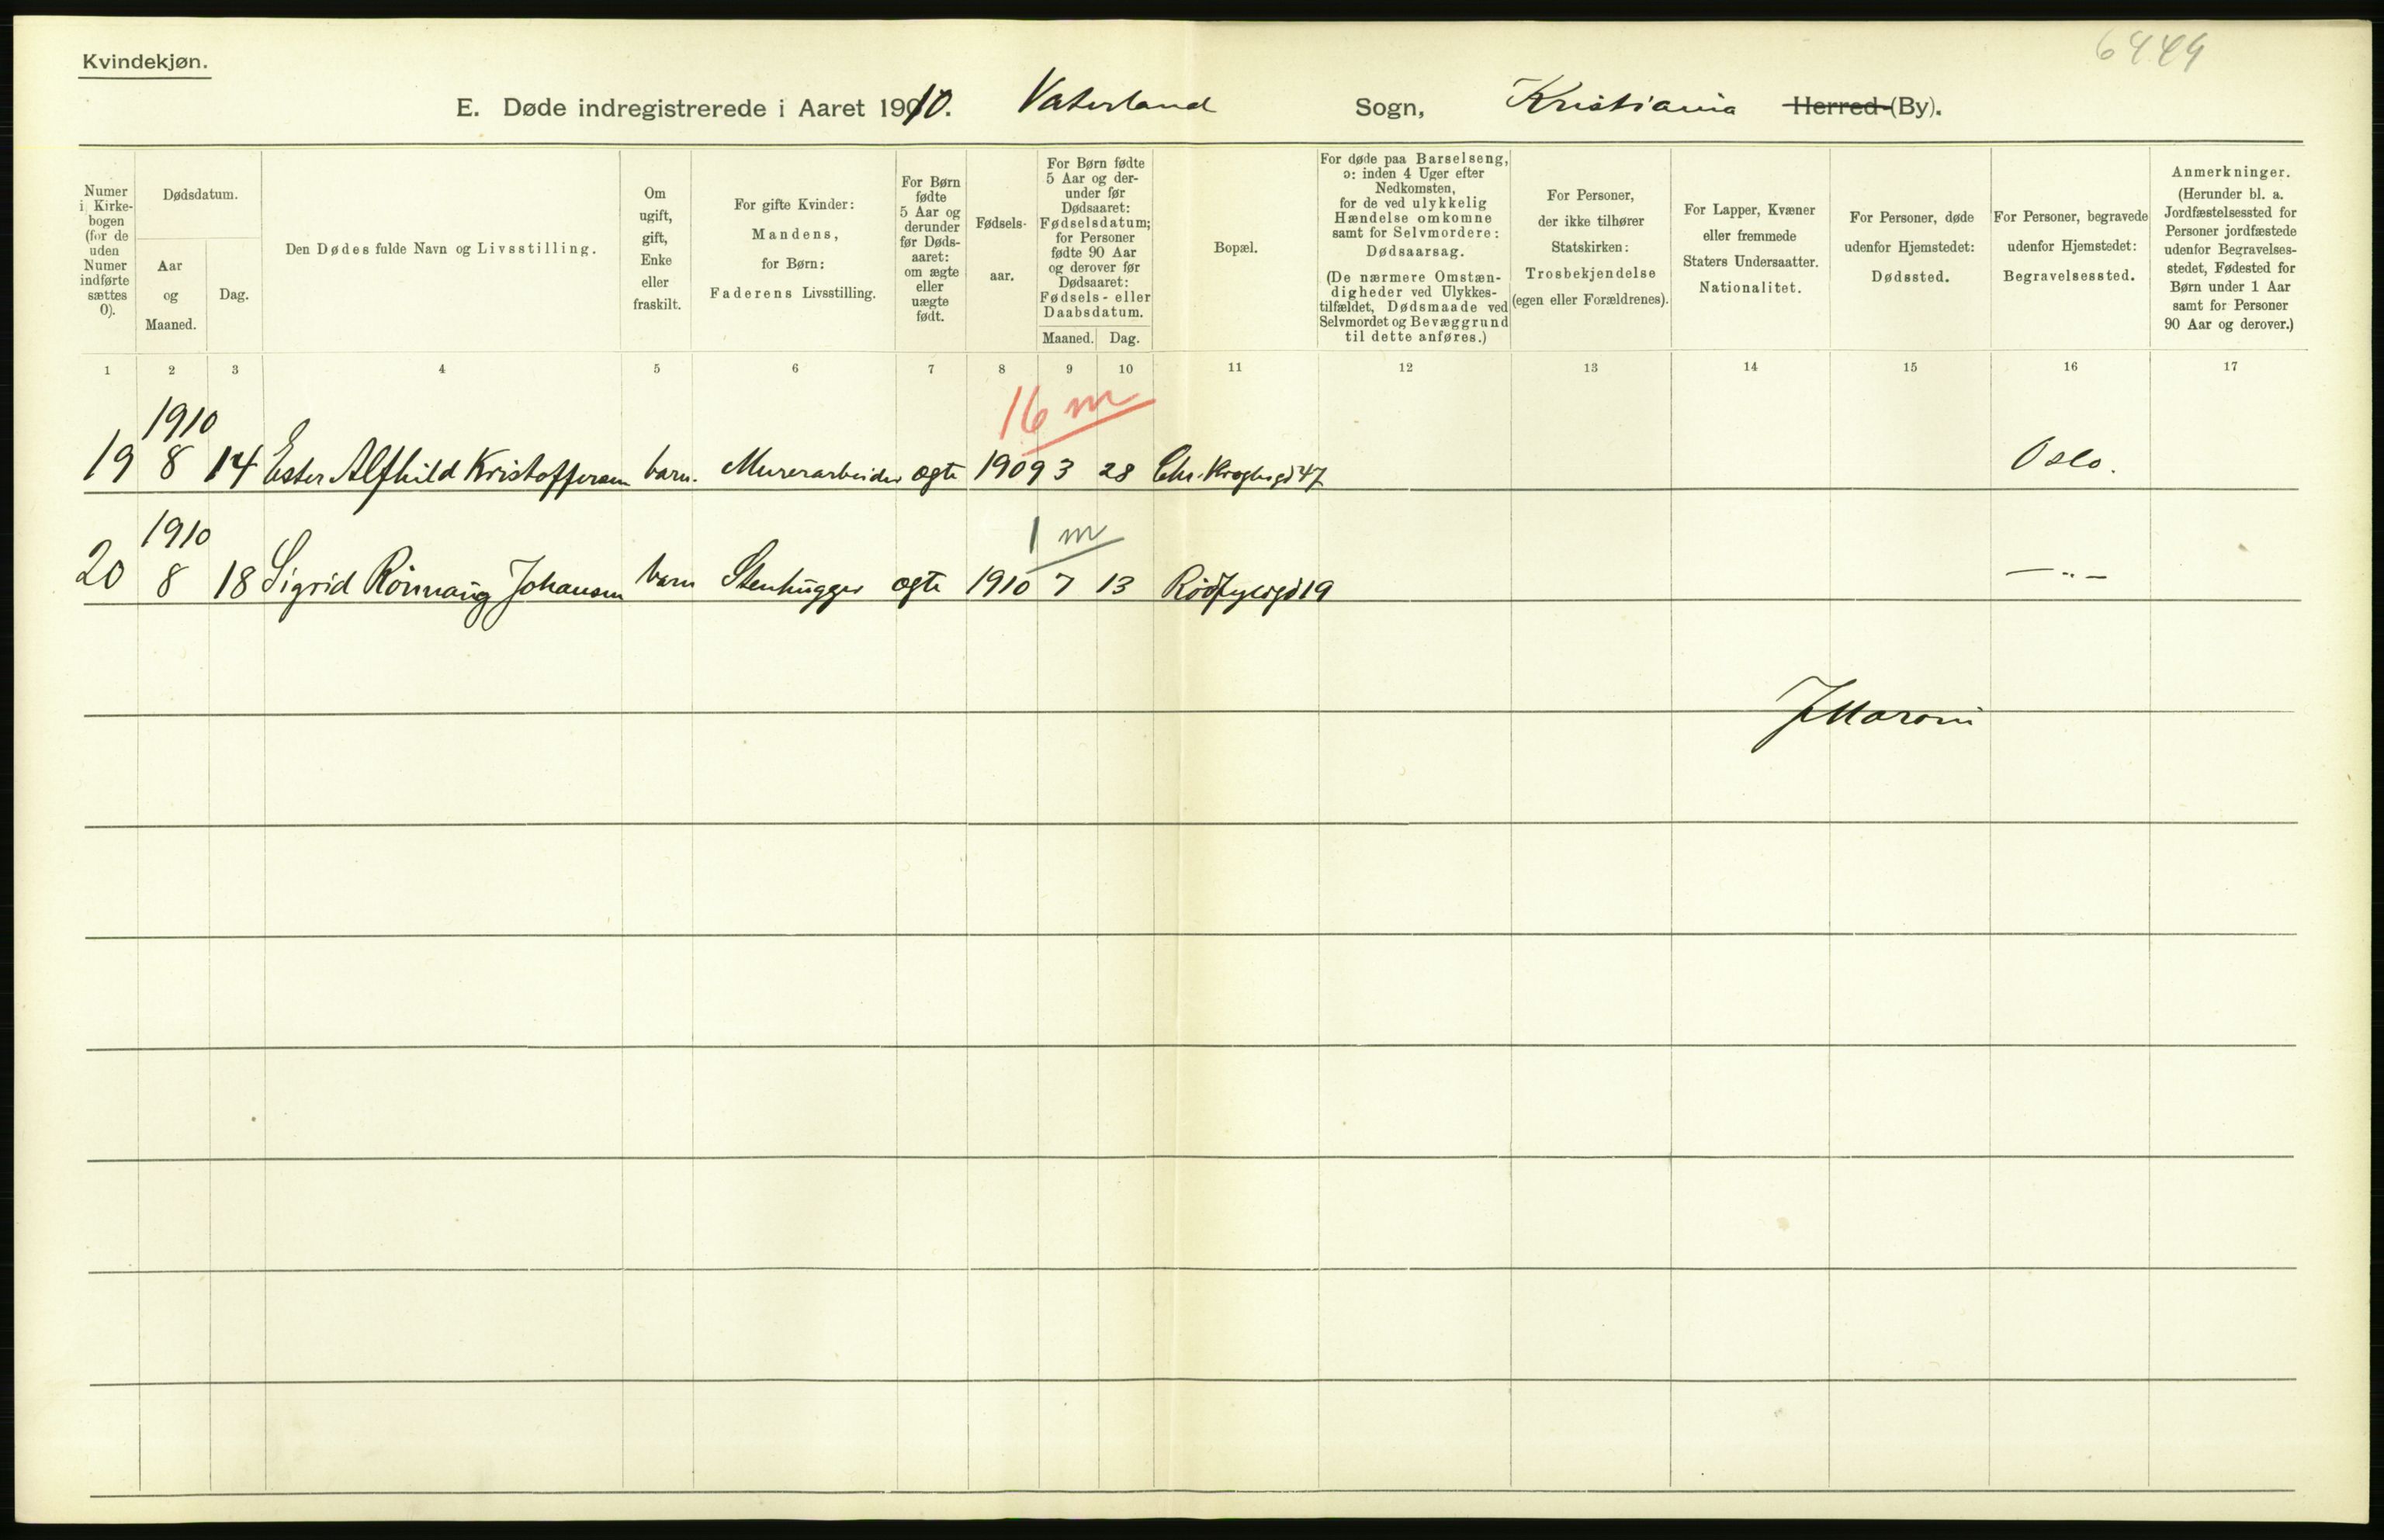 Kvindekjøn.
6449
E. Døde indregistrerede i Aaret 1910. Vaterland Sogn, Kristiania Herred (By).
Numer i Kirkebogen (for de uden Numer indførte sættes 0).
Dødsdatum.
Aar og Maaned.
Dag.
Den Dødes fulde Navn og Livsstilling.
Om ugift, gift, Enke eller fraskilt.
For gifte Kvinder: Mandens, for Børn: Faderens Livsstilling.
For Børn fødte 5 Aar og derunder før Dødsaaret: om ægte eller uægte født.
Fødselsaar.
For Børn fødte 5 Aar og derunder før Dødsaaret: Fødselsdatum; for Personer fødte 90 Aar og derover før Dødsaaret: Fødsels- eller Daabsdatum.
Maaned. Dag.
Bopæl.
For døde paa Barselseng, ɔ: inden 4 Uger efter Nedkomsten, for de ved ulykkelig Hændelse omkomne samt for Selvmordere: Dødsaarsag. (De nærmere Omstændigheder ved Ulykkestilfældet, Dødsmaade ved Selvmordet og Bevæggrund til dette anføres.)
For Personer, der ikke tilhører Statskirken: Trosbekjendelse (egen eller Forældrenes).
For Lapper, Kvæner eller fremmede Staters Undersaatter. Nationalitet.
For Personer, døde udenfor Hjemstedet: Dødssted.
For Personer, begravede udenfor Hjemstedet: Begravelsessted.
Anmerkninger. (Herunder bl. a. Jordfæstelsessted for Personer jordfæstede udenfor Begravelsesstedet, Fødested for Børn under 1 Aar samt for Personer 90 Aar og derover.)
1 2 3 4 5 6 7 8 9 10 11 12 13 14 15 16 17
1910 16 m
19 8 14 Ester Alfhild Kristoffersen barn. Murerarbeider ægte 1909 3 28 Chr. Kroghsgd 47 Oslo.
1910 1 m
20 8 18 Sigrid Rönnaug Johansen barn Stenhugger ægte 1910 7 13 Rödfyldsgd 19 —"—